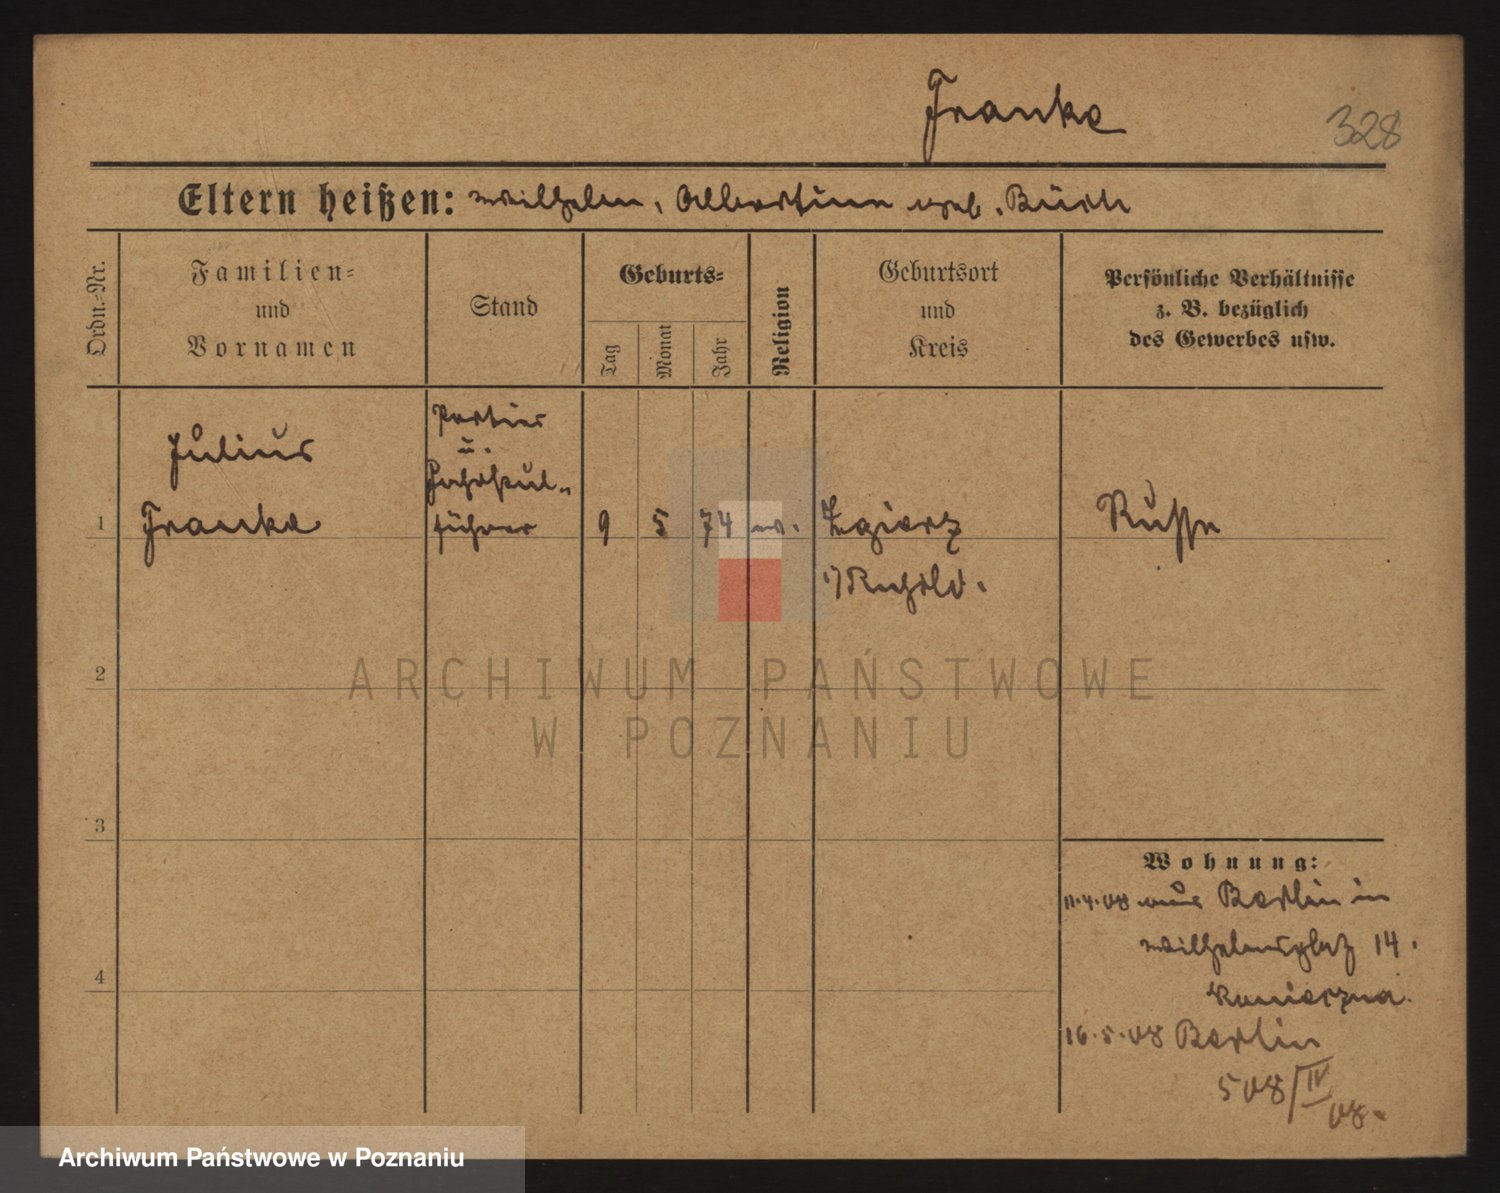 Franke
328
Eltern heißen: Wilhelm, Albertine geb.
Ordn.-Nr.
Familien-
und
Vornamen
Stand
Geburts-
Tag
Monat
Jahr
Religion
Geburtsort
und
Kreis
Persönliche Verhältnisse
z. B. bezüglich
des Gewerbes usw.
Julius
Franke
Portier
u.
Fahrstul-
führer
1
9
5
74
ev.
Zgierz
i/Rußld.
Russe
2
3
4
Wohnung:
11.4.08 aus Berlin in
Wilhelmsplatz 14.
16.5.08 Berlin
508/IV
08.
ARCHIWUM PAŃSTWOWE
W POZNANIU
Archiwum Państwowe w Poznaniu